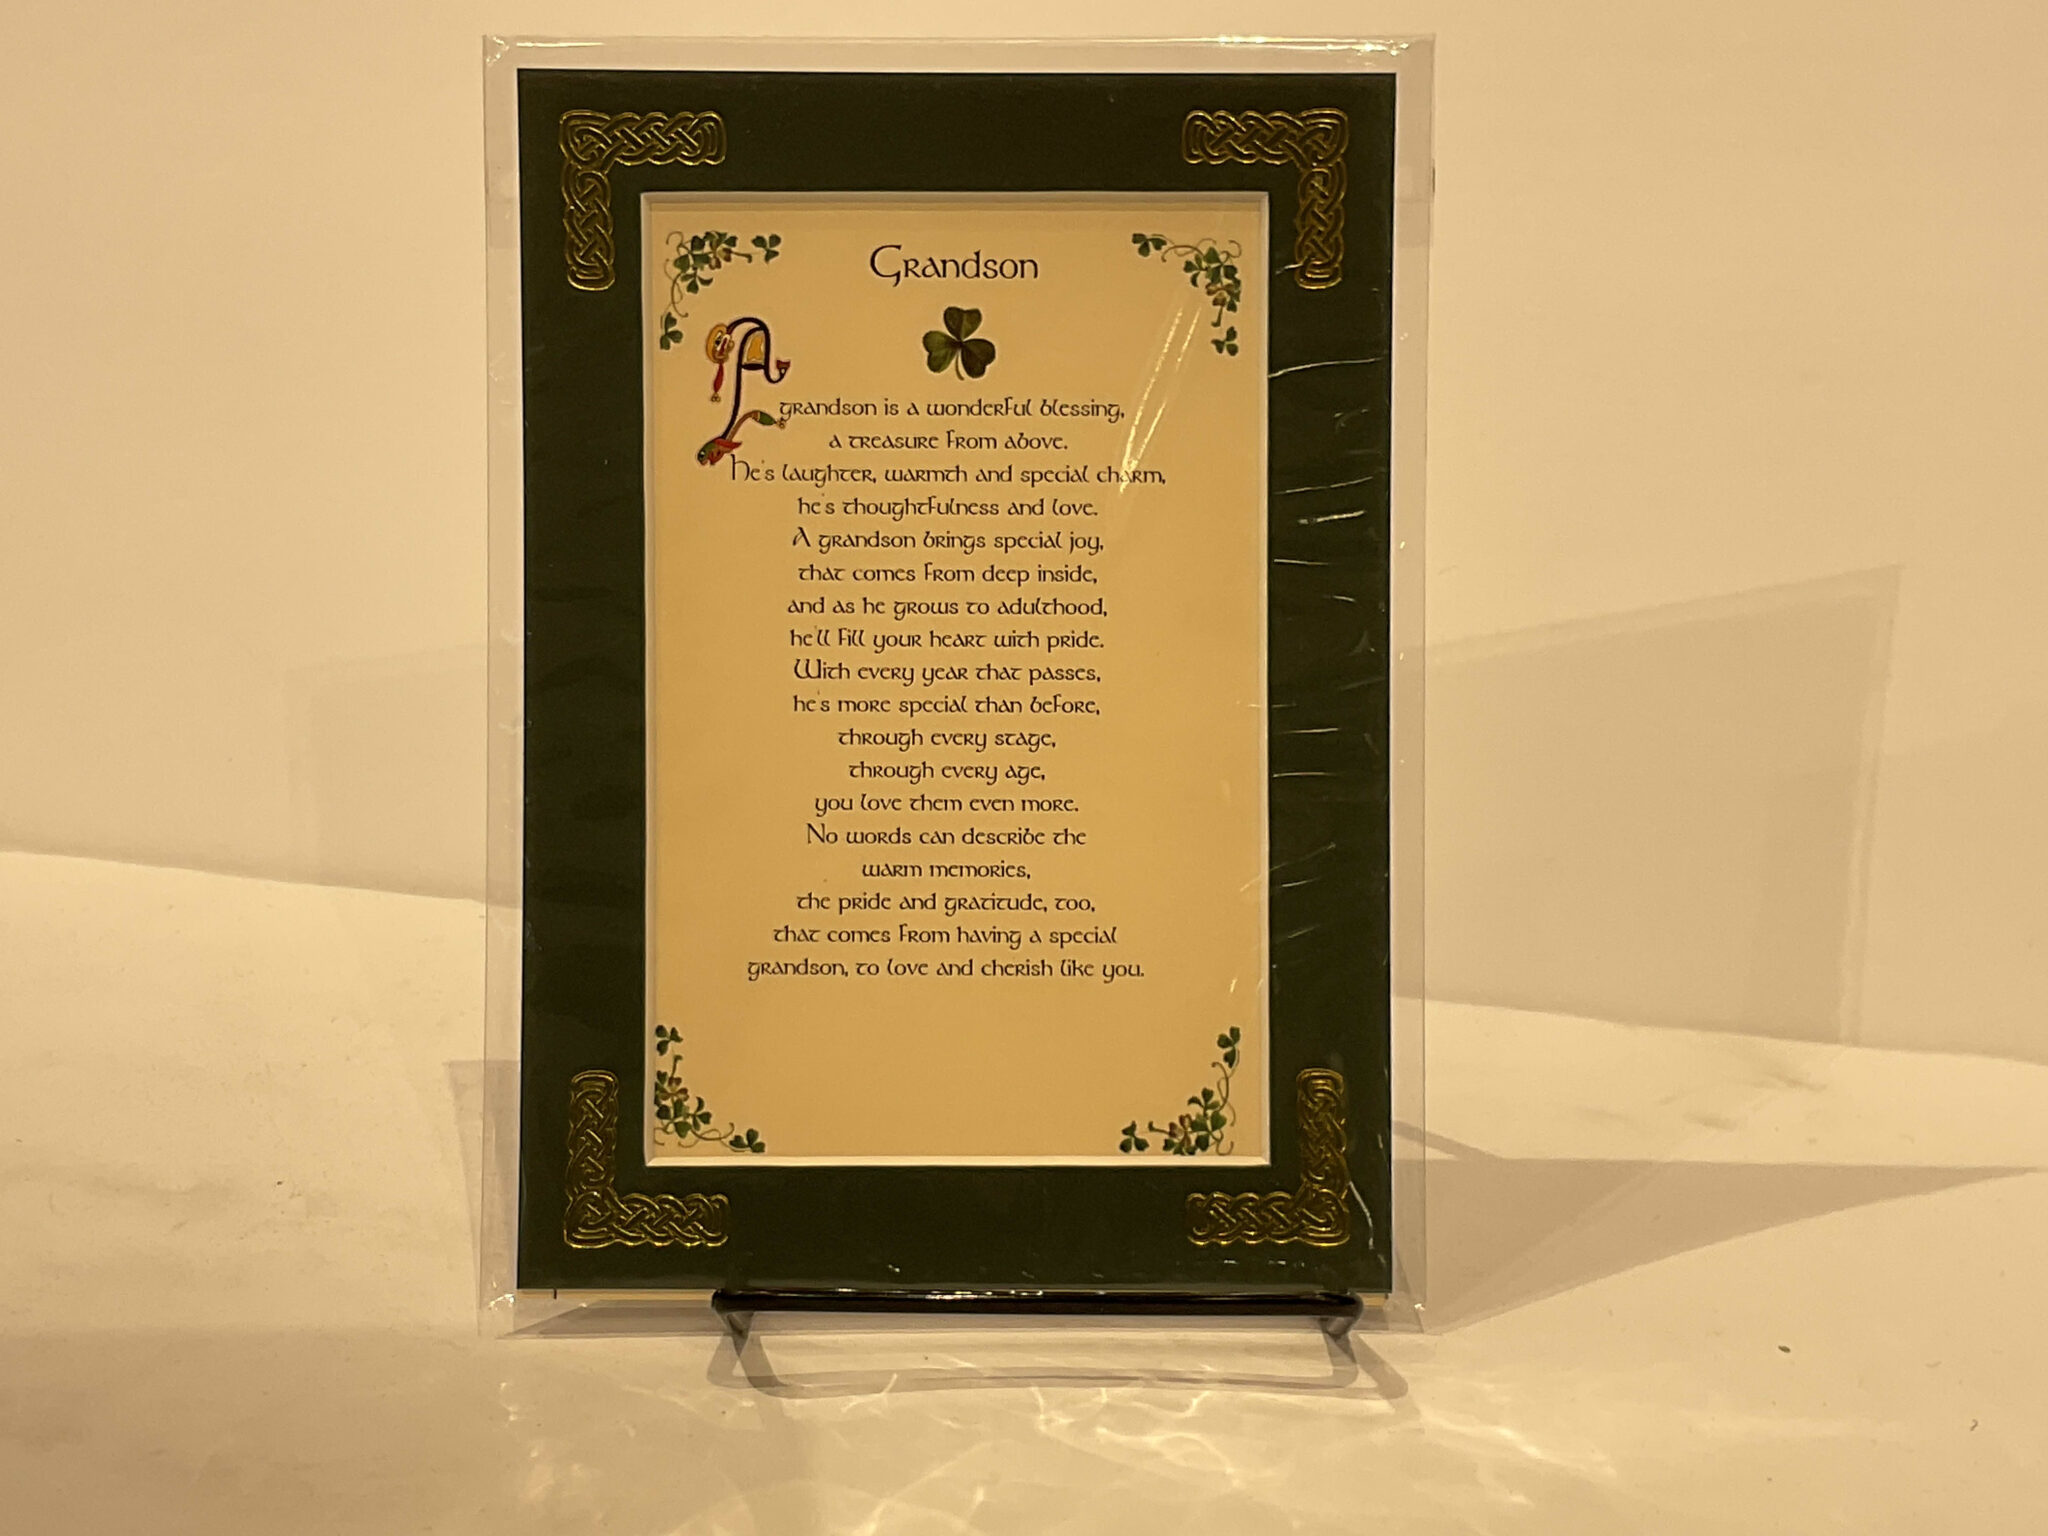 Grandson
A grandson is a wonderful blessing,
a treasure from above.
He's laughter, warmth and special charm,
he's thoughtfulness and love.
A grandson brings special joy,
that comes from deep inside,
and as he grows to adulthood,
he'll fill your heart with pride.
With every year that passes,
he's more special than before,
through every stage,
through every age,
you love them even more.
No words can describe the
warm memories,
the pride and gratitude, too,
that comes from having a special
grandson, to love and cherish like you.